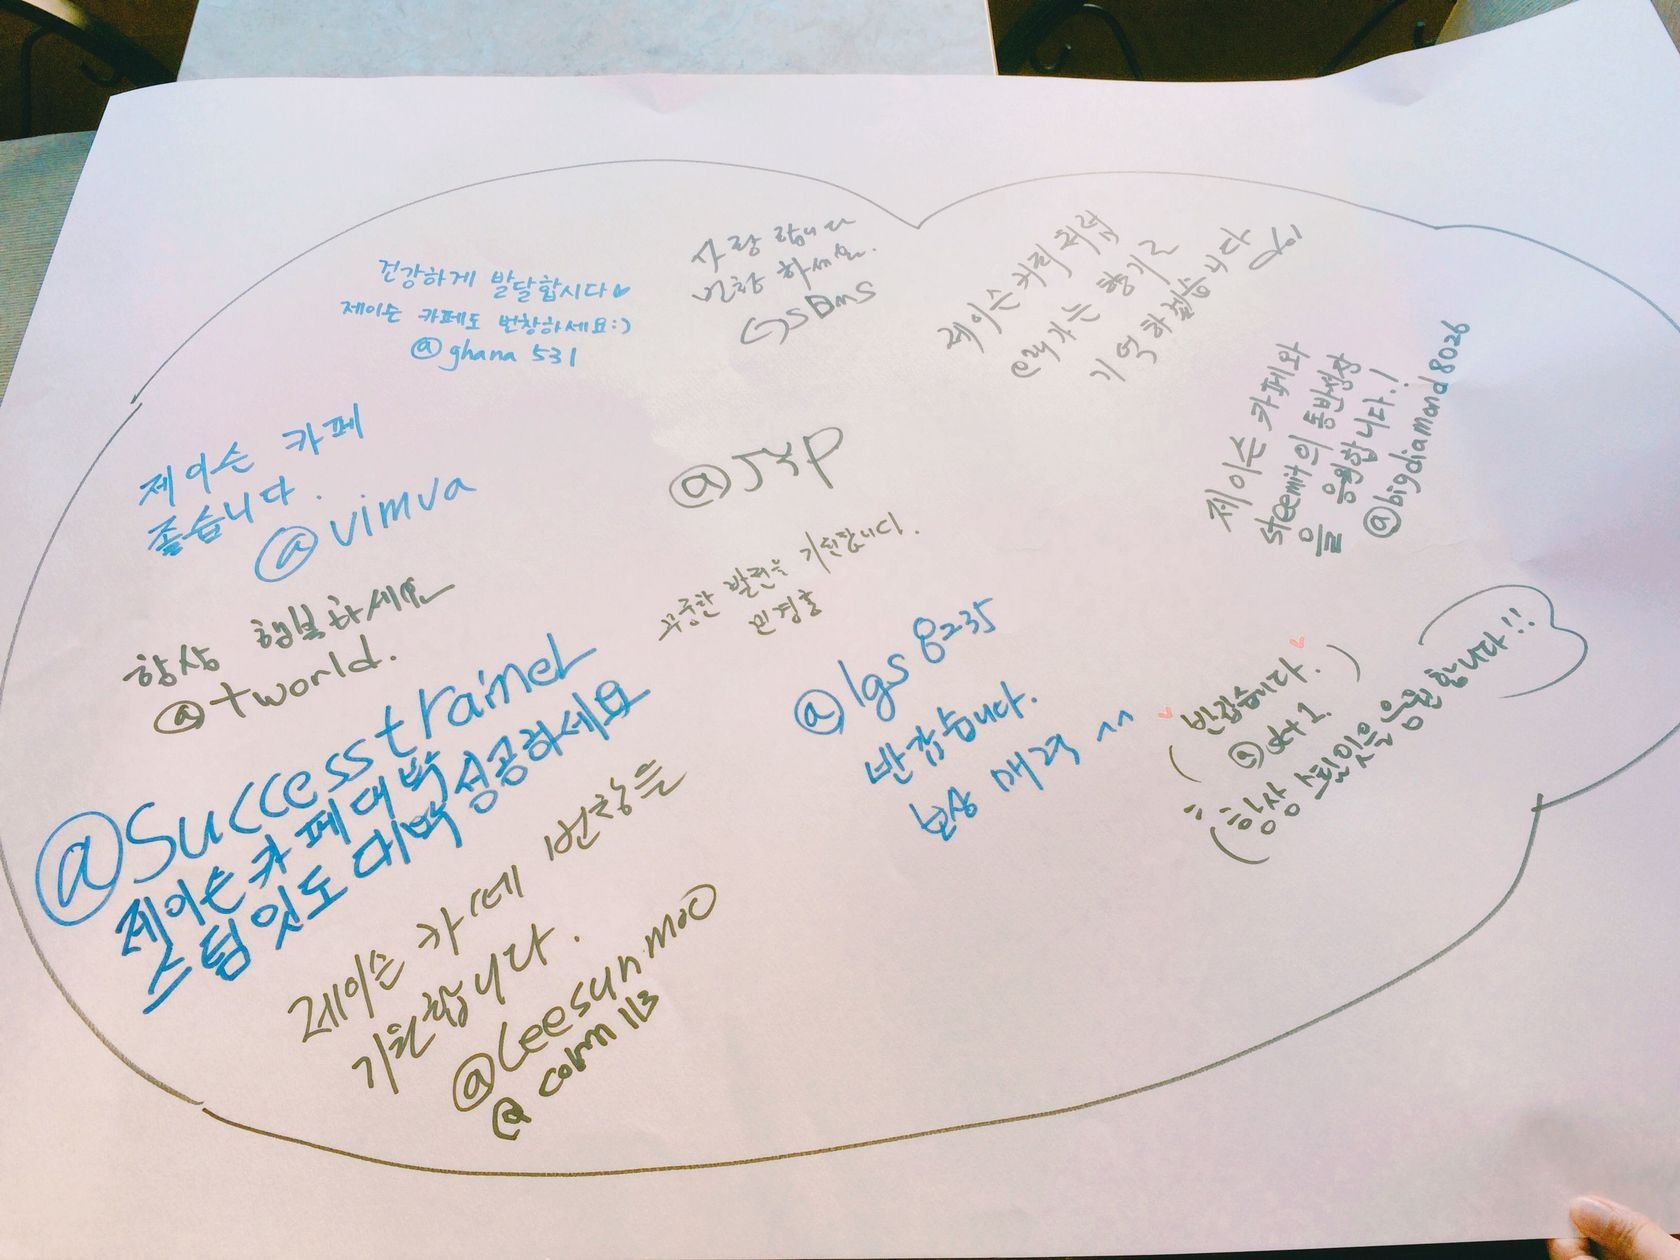 건강하게 발달합시다
제이슨 카페도 번창하세요:)
@ghana 531
사랑합니다
번창하세요.
GSDMS
제이슨 커피처럼
오래가는 향기로
기억하겠습니다
제이슨 카페와
steemit의 동반성장
을 응원합니다.!
@bigdiamond8026
제이슨 카페
좋습니다.
@vimva
@JYP
꾸준한 발전을 기원합니다.
민경호
항상 행복하세요
@tworld.
@Successtrainer
제이슨카페대박
스팀잇도 대박 성공하세요
@lgs8235
반갑습니다.
보상 매력 ^^
(반갑습니다.)
(항상 스팀잇을 응원합니다!!
제이슨 카페 번창을
기원합니다.
@leesunmoo
@corn113